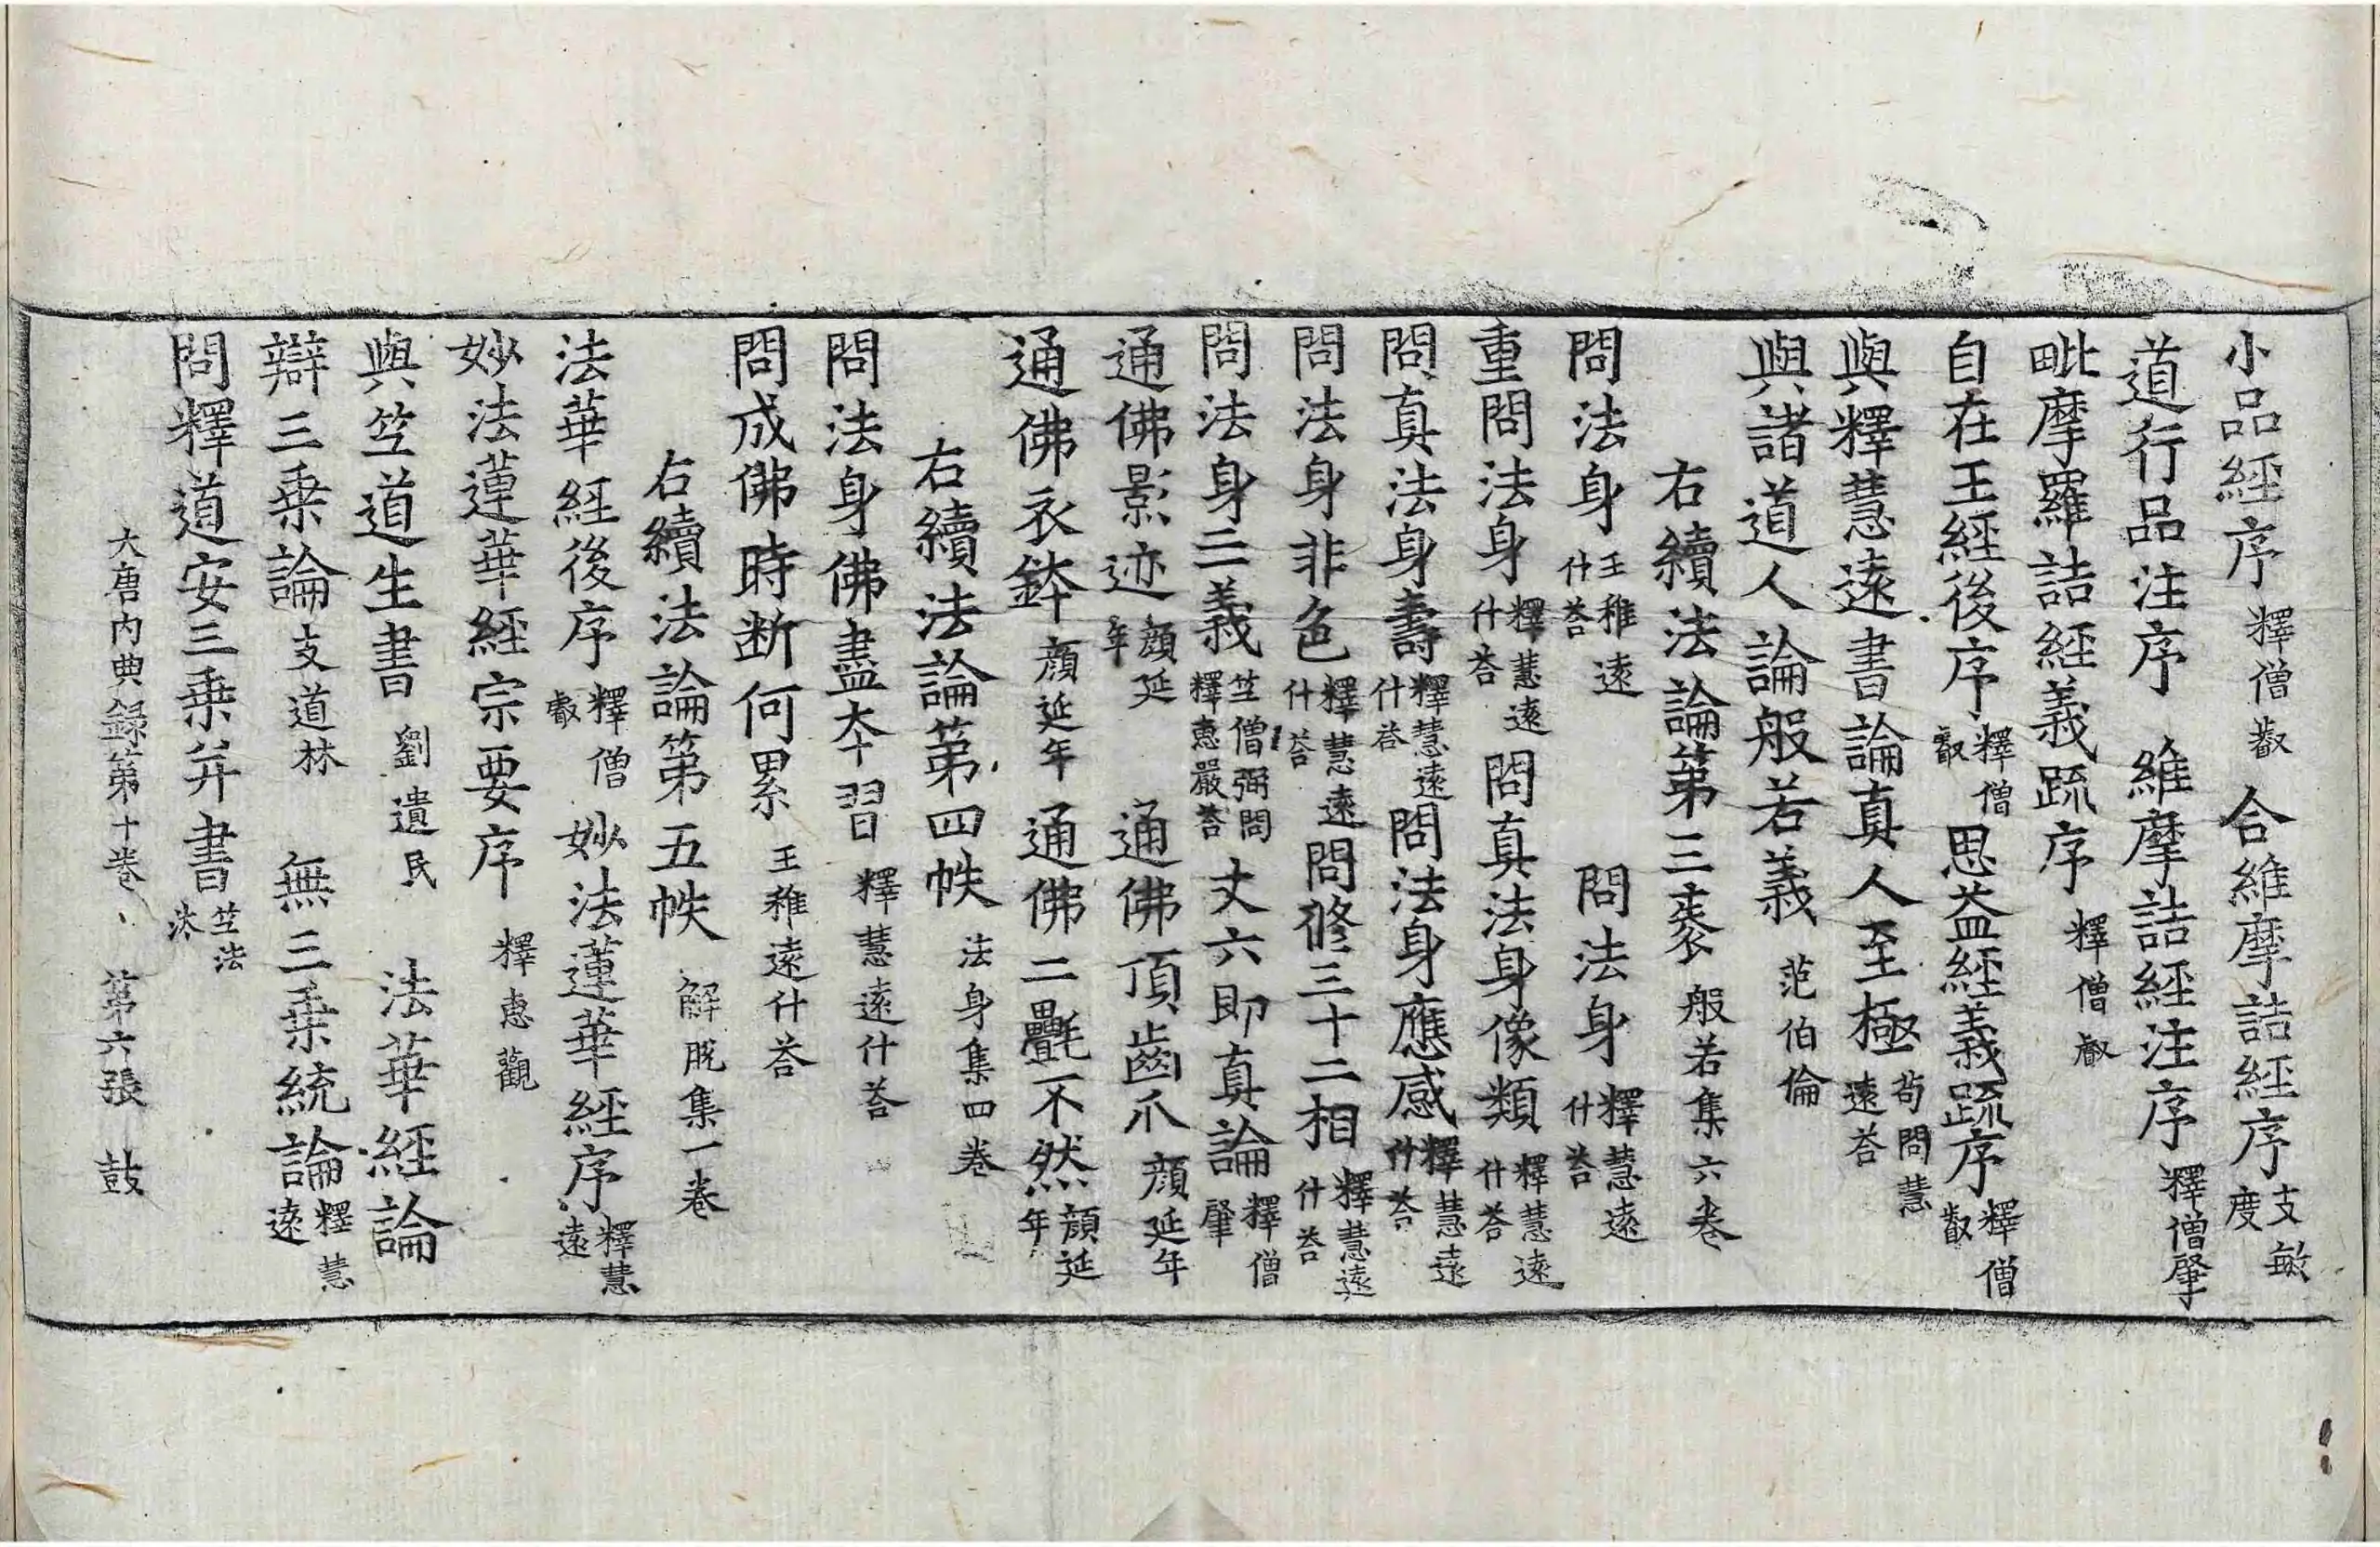 小品經序釋僧叡 合維摩詰經序支敏度
道行品注序 維摩詰經注序釋僧肇
毗摩羅詰經義䟽序釋僧叡
自在王經後序釋僧叡 思益經義䟽序釋僧叡
與釋慧遠書論真人至極茍問慧遠荅
與諸道人論般若義 范伯倫
右續法論第三袠 般若集六卷
問法身王稚遠什荅 問法身釋慧遠什荅
重問法身釋慧遠什荅 問真法身像類釋慧遠什荅
問真法身壽釋慧遠什荅 問法身應感釋慧遠什荅
問法身非色釋慧遠什荅 問修三十二相釋慧遠什荅
問法身二義竺僧弼問釋惠嚴荅 丈六即真論釋僧肇
通佛影迹顔延年 通佛頂齒爪顔延年
通佛衣鉢顔延年 通佛二㲲不然顔延年
右續法論第四帙 法身集四卷
問法身佛盡夲習 釋慧遠什荅
問成佛時断何累 王稚遠什荅
右續法論第五帙 解脫集一卷
法華経後序釋僧叡 妙法蓮華經序釋慧遠
妙法蓮華經宗要序 釋惠觀
與竺道生書 劉遺民 法華經論
辯三乗論支道林 無三乗統論釋慧遠
問釋道安三乗并書竺法汰
大唐内典録第十卷 第六張 鼓